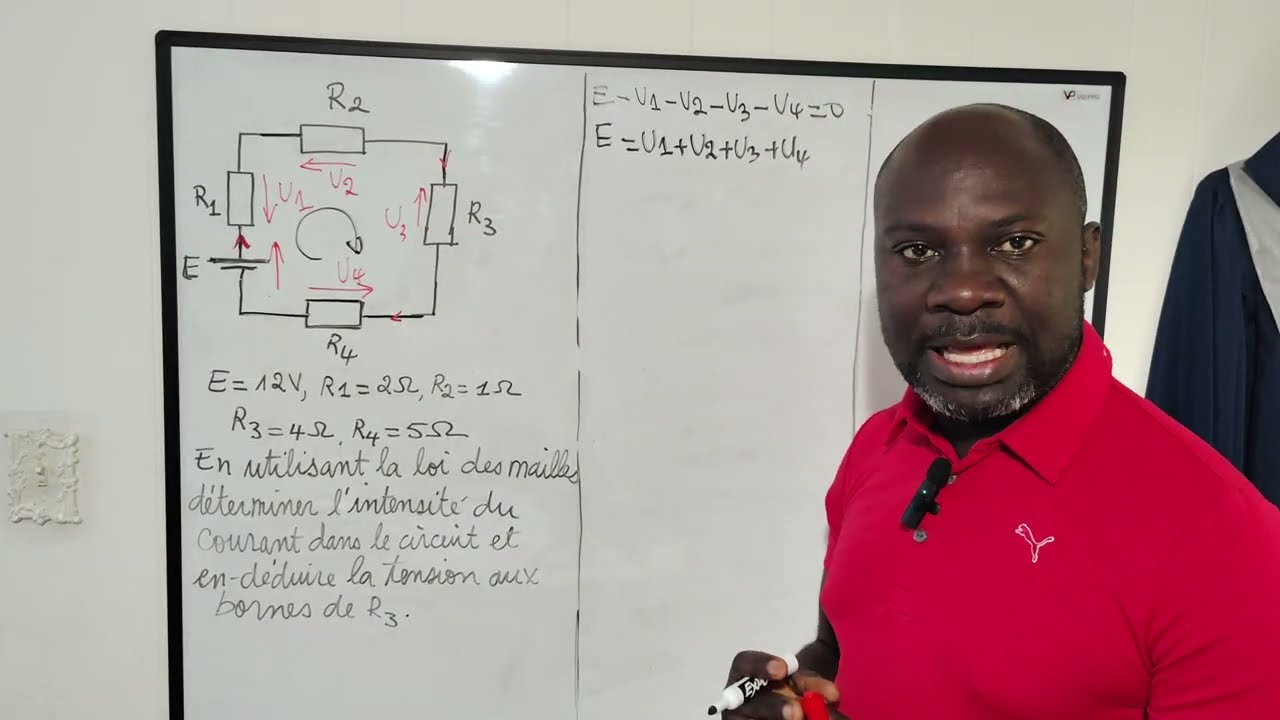 R2
R1
U1
U2
U3
R3
E
U4
R4
E = 12V, R1 = 2Ω, R2 = 1Ω
R3 = 4Ω, R4 = 5Ω
En utilisant la loi des mailles
déterminer l'intensité du
courant dans le circuit et
en-déduire la tension aux
bornes de R3.
E - U1 - U2 - U3 - U4 = 0
E = U1 + U2 + U3 + U4